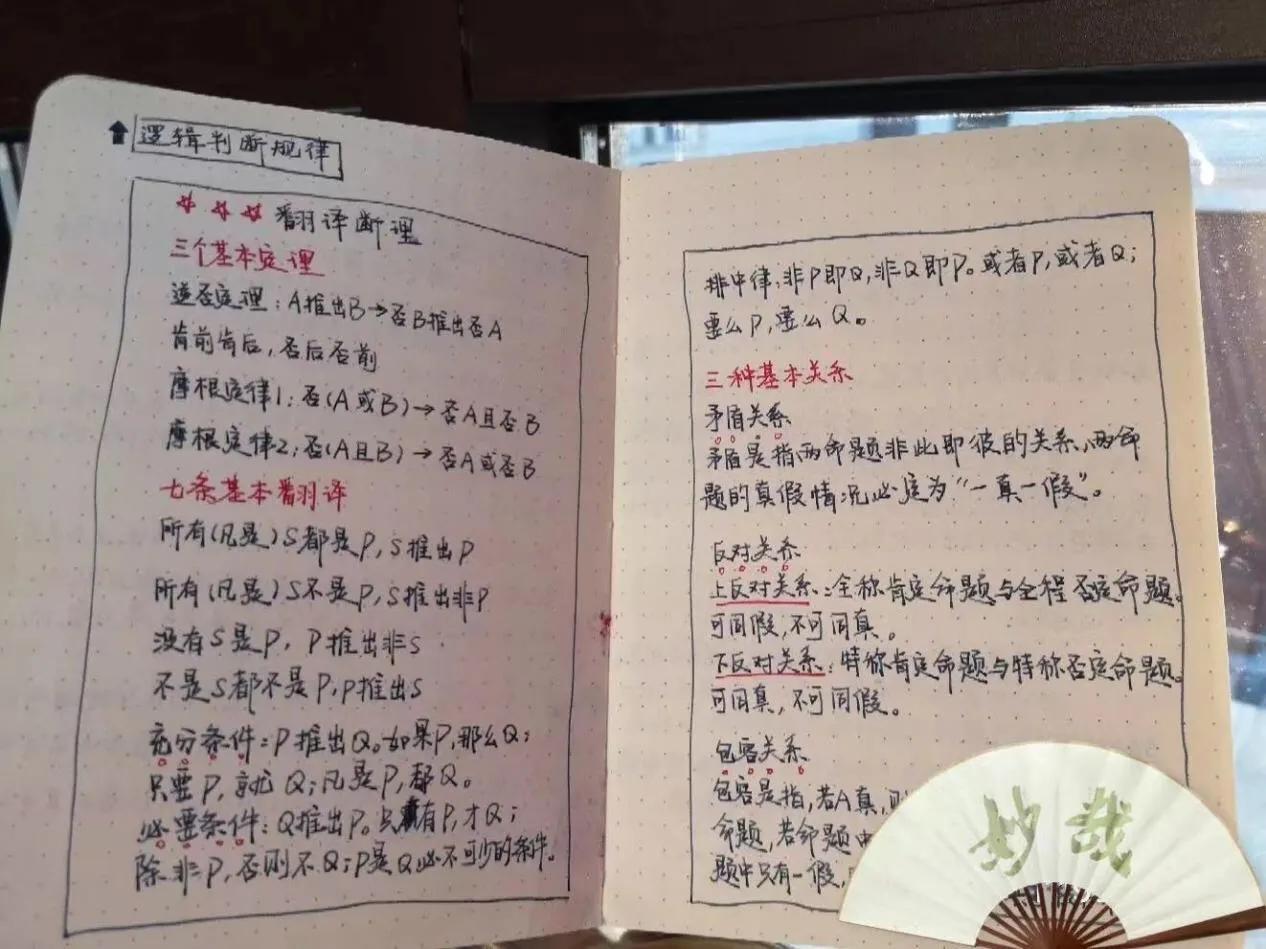 逻辑判断规律
翻译断理
三个基本定理
逆否定理：A推出B→否B推出否A
肯前肯后，否后否前
摩根定律1：否(A或B)→否A且否B
摩根定律2：否(A且B)→否A或否B
七条基本翻译
所有(凡是)S都是P，S推出P
所有(凡是)S不是P，S推出非P
没有S是P，P推出非S
不是S都不是P，P推出S
充分条件：P推出Q。如果P，那么Q；
只要P，就Q；凡是P，都Q。
必要条件：Q推出P。只有P，才Q；
除非P，否则不Q；P是Q必不可少的条件。
排中律：非P即Q，非Q即P。或者P，或者Q；
要么P，要么Q。
三种基本关系
矛盾关系
矛盾是指，两命题非此即彼的关系，两命
题的真假情况必定为“一真一假”。
反对关系
上反对关系：全称肯定命题与全程否定命题。
可同假，不可同真。
下反对关系：特称肯定命题与特称否定命题。
可同真，不可同假。
包容关系
包容是指，若A真，则
命题，若命题中
题中只有一假，
妙哉